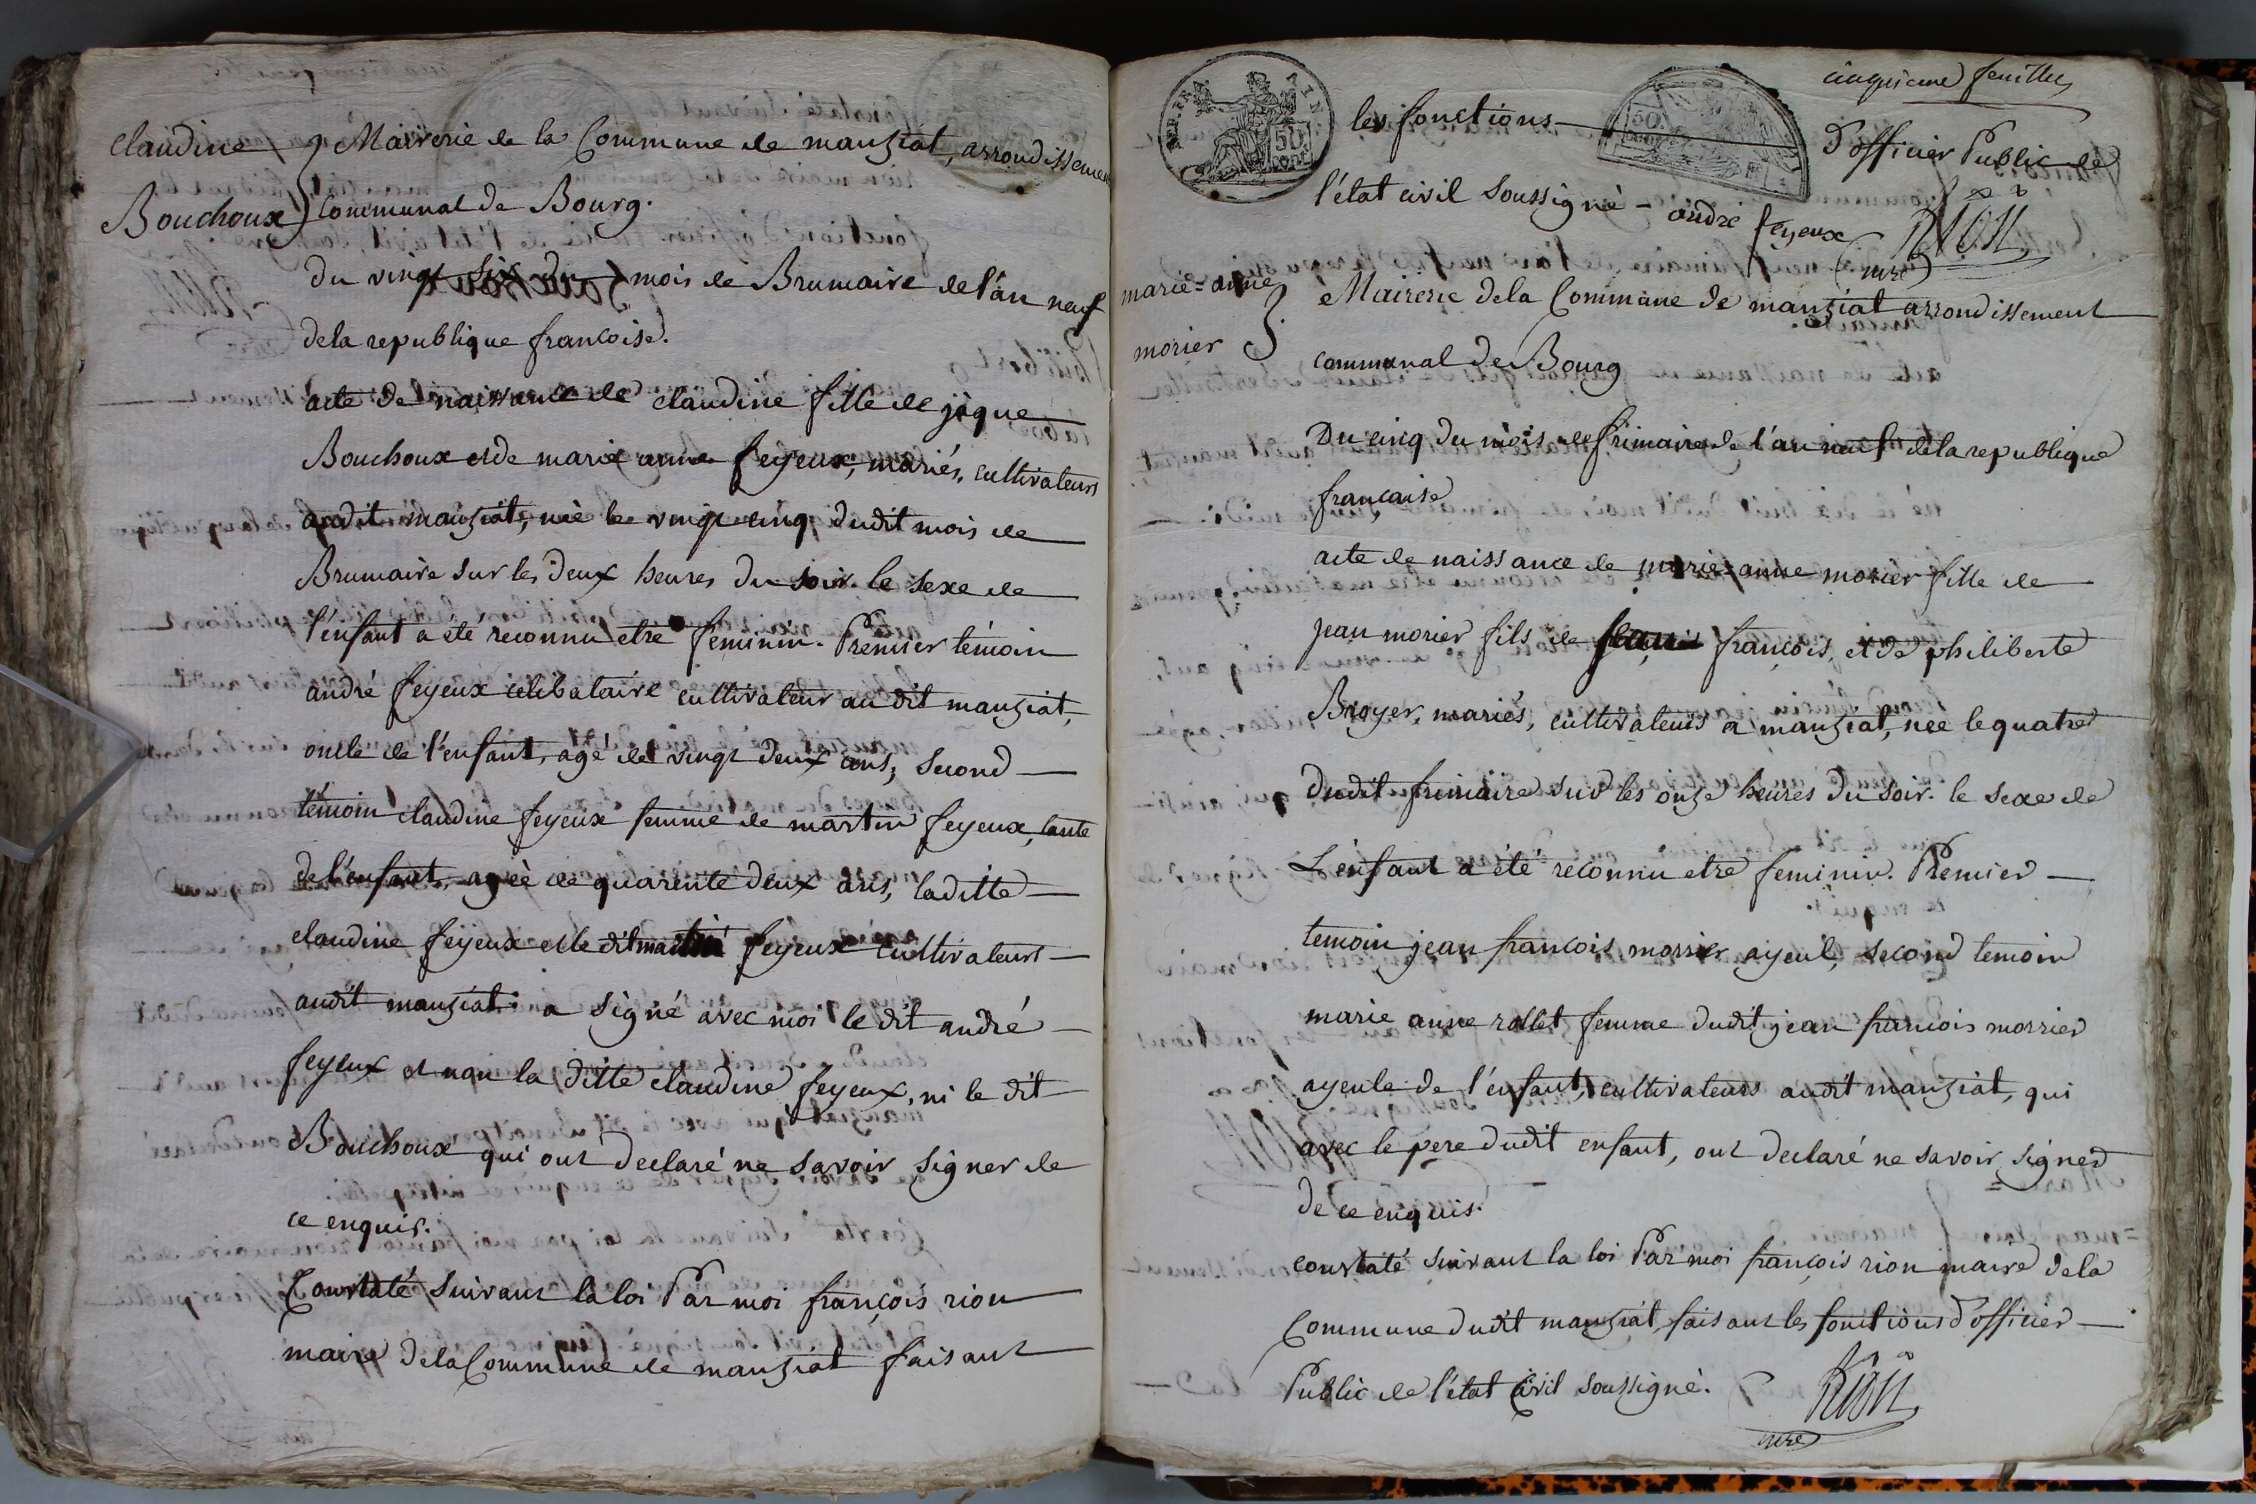 claudine
Bouchoux
Mairerie de la Commune de manziat, arrondissement
Communal de Bourg.
du vingt six du mois de Brumaire de l'an neuf
de la republique francoise.
acte de naissance de claudine fille de jâque
Bouchoux et de marie anne feyeux, mariés, cultivateurs
audit manziat, née le vingt cinq dudit mois de
Brumaire sur les deux heures du soir. le sexe de
l'enfant a été reconnu etre feminin. Premier témoin
andré feyeux celibataire cultivateur au dit manziat,
oncle de l'enfant, agé de vingt deux ans, second
témoin claudine feyeux femme de martin feyeux, tante
de l'enfant, agée de quarente deux ans, laditte
claudine feyeux et le dit martin feyeux cultivateurs
audit manziat. a signé avec moi le dit andré
feyeux et non la ditte claudine feyeux, ni le dit
Bouchoux qui ont declaré ne savoir signer de
ce enquis.
Constaté suivant la loi Par moi françois rion
maire de la Commune de manziat faisant
cinquieme feuillet
les fonctions d'officier Public de
l'état civil soussigné - andré feyeux Rion
mre
REP. FRA
50
CENT
50
marie=anne
morier
Mairerie de la Commune de manziat arrondissement
communal de Bourg
Du cinq du mois de frimaire de l'an neuf de la republique
française
acte de naissance de marie=anne morier fille de
jean morier fils de jean françois, et de philiberte
Broyer, mariés, cultivateurs a manziat, née le quatre
dudit frimaire sur les onze heures du soir. le sexe de
L'enfant a été reconnu etre feminin. Premier
temoin jean francois morier ayeul, second temoin
marie anne rollet femme dudit jean francois morrier
ayeule de l'enfant, cultivateurs audit manziat, qui
avec le pere dudit enfant, ont declaré ne savoir signer
de ce enquis.
constaté suivant la loi Par moi françois rion maire de la
Commune dudit manziat, faisant les fonctions d'officier
Public de l'état Civil soussigné. Rion
mre